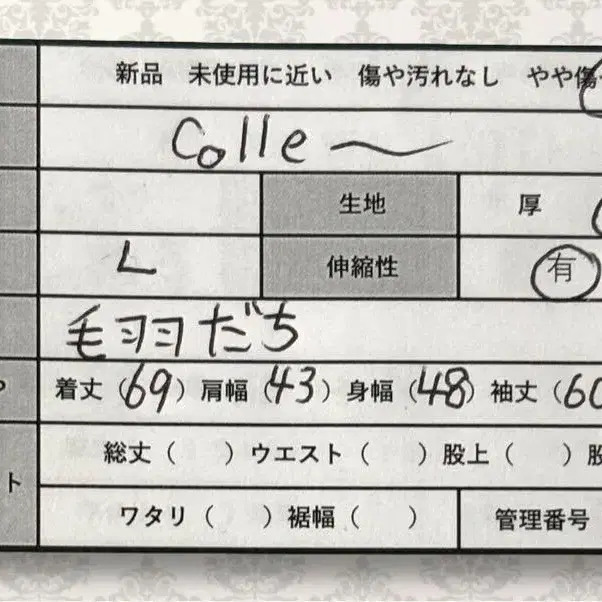 新品 未使用に近い 傷や汚れなし やや傷
Colle〜
生地 厚
L 伸縮性 有
毛羽だち
着丈（69）肩幅（43）身幅（48）袖丈（60
総丈（ ）ウエスト（ ）股上（ ）股
ト
ワタリ（ ）裾幅（ ） 管理番号